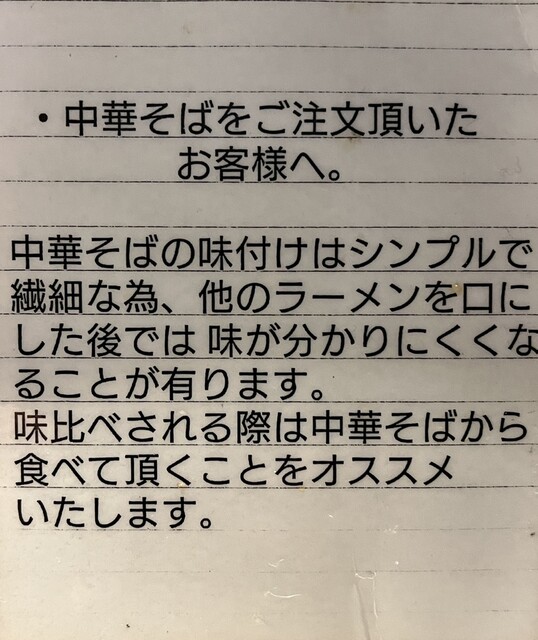 ・中華そばをご注文頂いた
お客様へ。
中華そばの味付けはシンプルで
繊細な為、他のラーメンを口に
した後では 味が分かりにくくな
ることが有ります。
味比べされる際は中華そばから
食べて頂くことをオススメ
いたします。